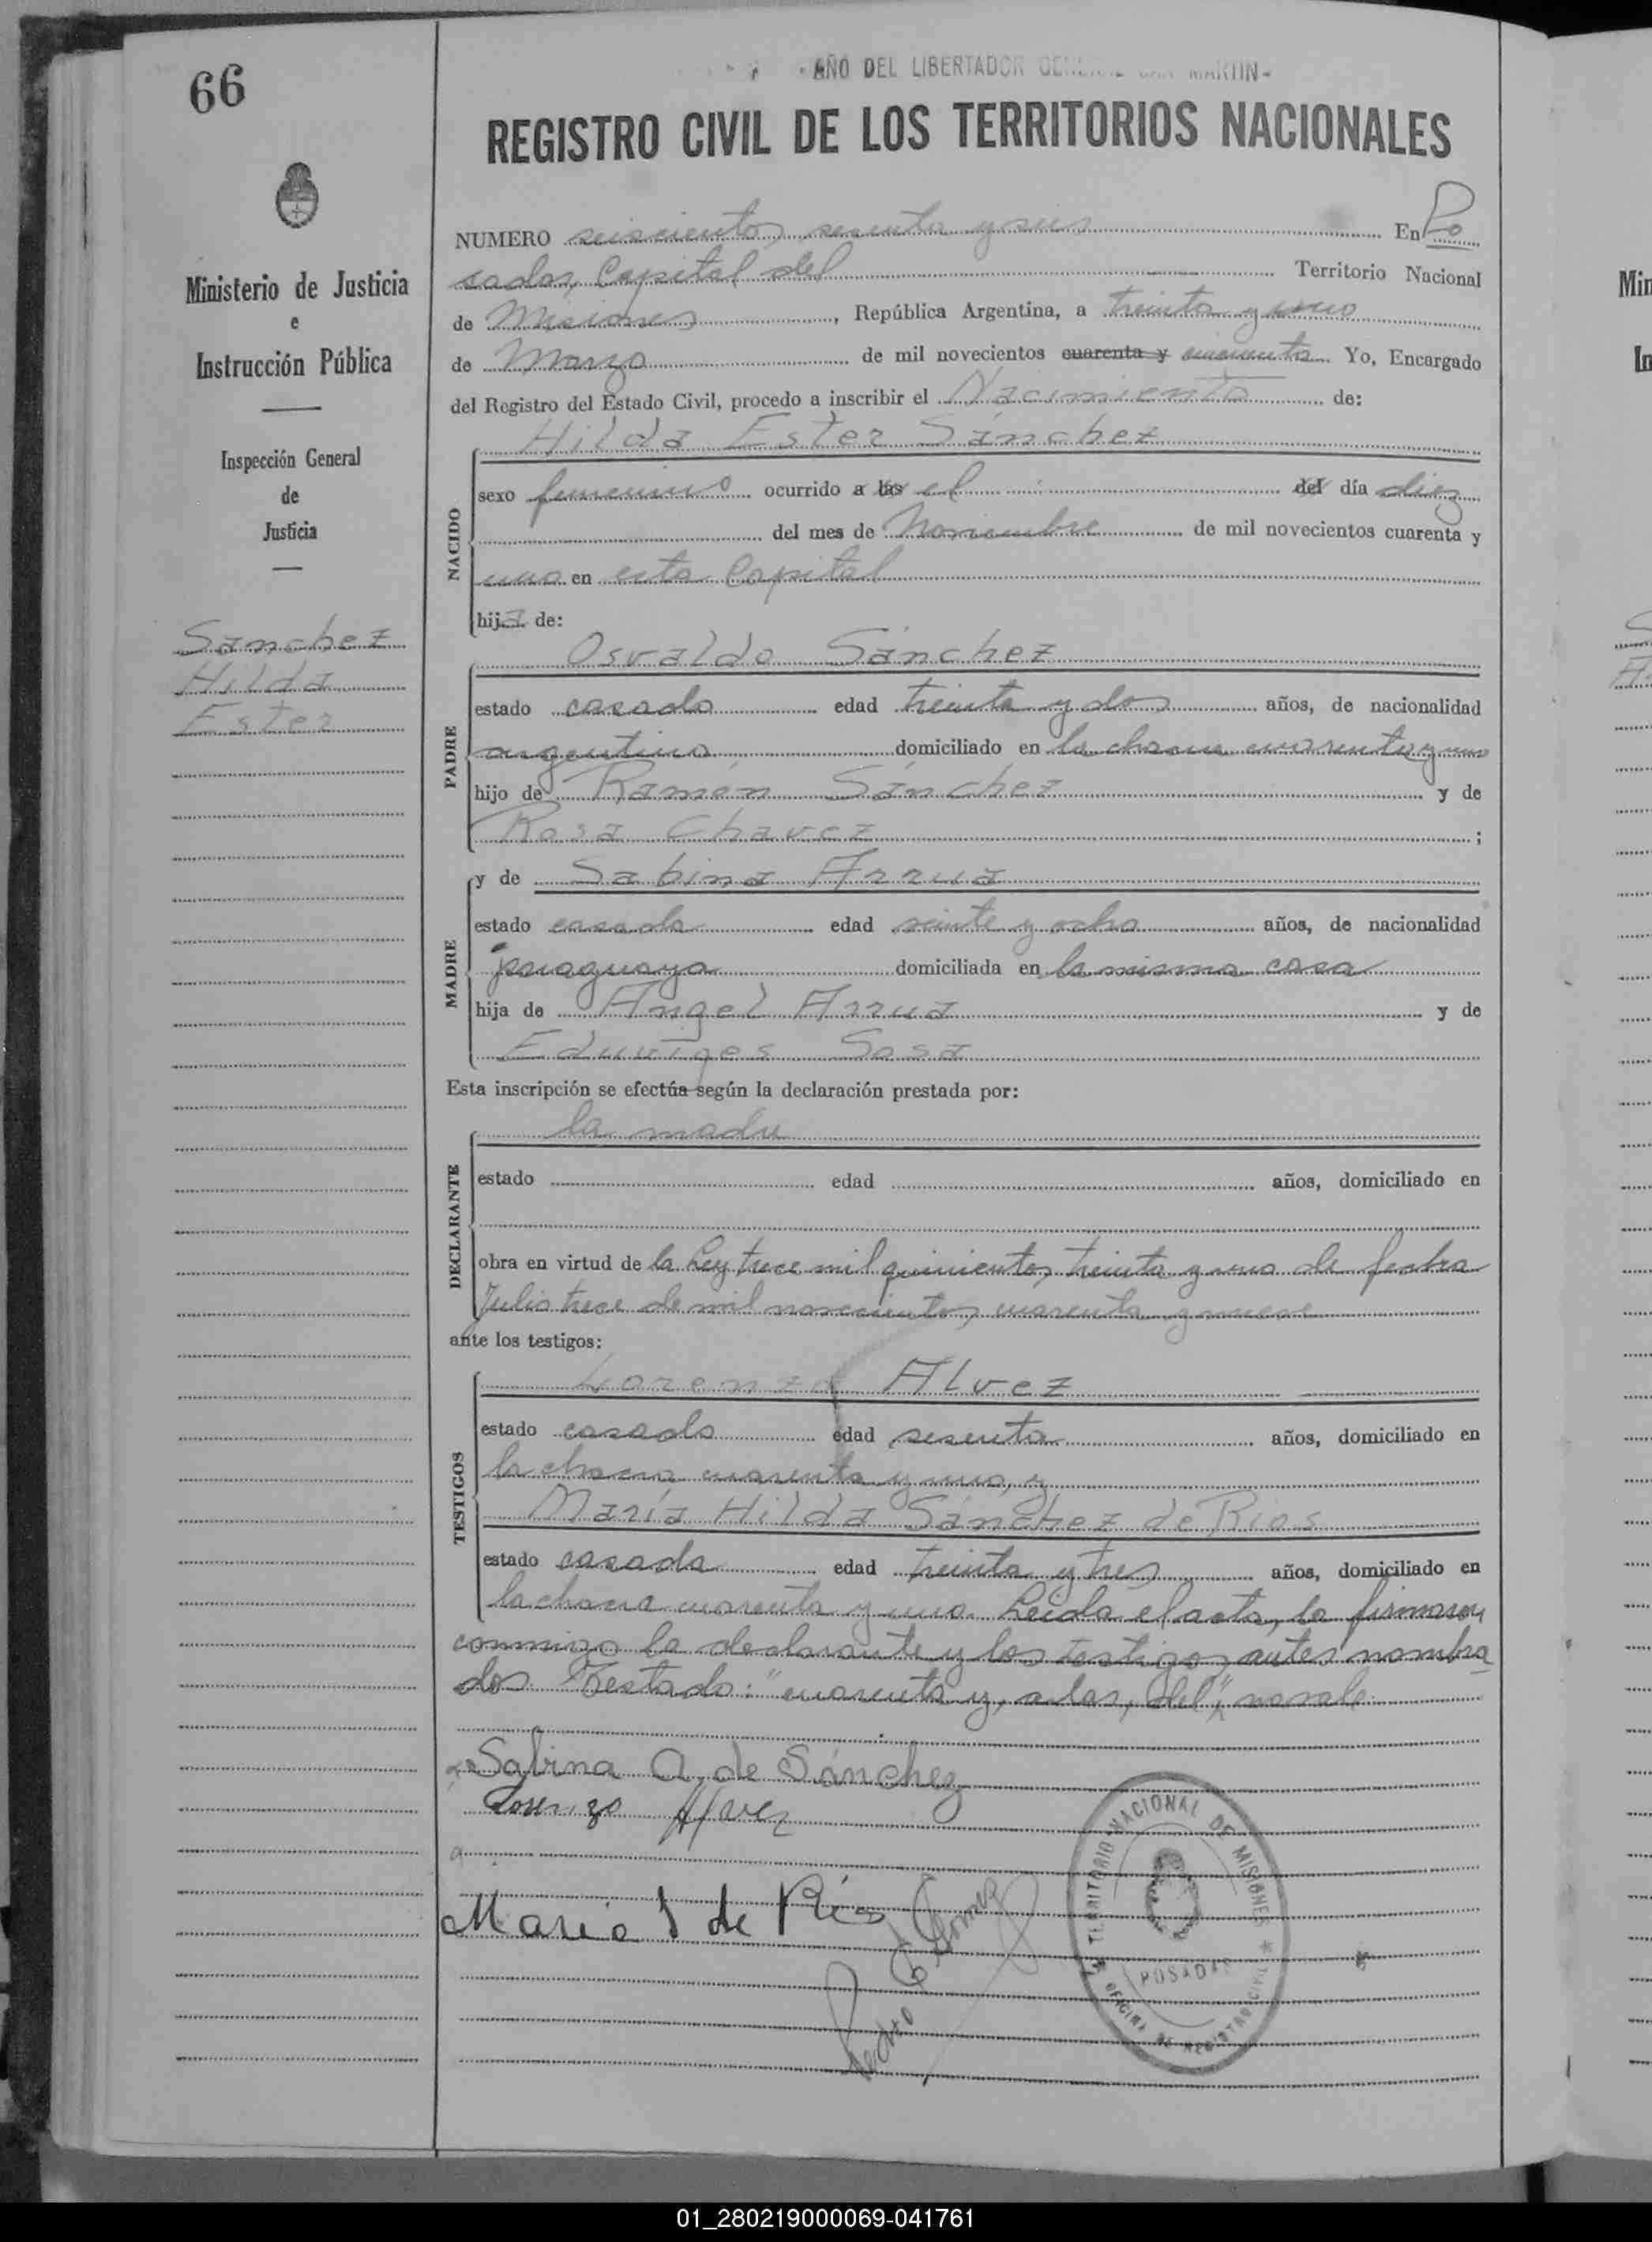 66
AÑO DEL LIBERTADOR GENERAL SAN MARTIN-
REGISTRO CIVIL DE LOS TERRITORIOS NACIONALES
Ministerio de Justicia
e
Instrucción Pública
Inspección General
de
Justicia
Sánchez
Hilda
Ester
NUMERO seiscientos sesenta y seis En Po
sadas, Capital del Territorio Nacional
de Misiones, República Argentina, a treinta y uno
de Marzo de mil novecientos cuarenta y cincuenta Yo, Encargado
del Registro del Estado Civil, procedo a inscribir el Nacimiento de:
Hilda Ester Sánchez
NACIDO
sexo femenino ocurrido a las el del día diez
del mes de Noviembre de mil novecientos cuarenta y
uno en esta Capital
hija de:
Osvaldo Sánchez
PADRE
estado casado edad treinta y dos años, de nacionalidad
argentino domiciliado en la chacra cuarenta y uno
hijo de Ramón Sánchez y de
Rosa Chavez ;
y de Sabina Arrua
MADRE
estado casada edad veinte y ocho años, de nacionalidad
paraguaya domiciliada en la misma casa
hija de Angel Arrua y de
Eduviges Sosa
Esta inscripción se efectúa según la declaración prestada por:
la madre
DECLARANTE
estado edad años, domiciliado en
obra en virtud de la Ley trece mil quinientos treinta y uno de fecha
Julio trece de mil novecientos cuarenta y nueve
ante los testigos:
Lorenzo Alvez
TESTIGOS
estado casado edad sesenta años, domiciliado en
la chacra cuarenta y uno, y
María Hilda Sánchez de Rios
estado casada edad treinta y tres años, domiciliado en
la chacra cuarenta y uno. Leida el acta, la firmaron
conmigo la declarante y los testigos antes nombra
dos. Testado: "cuarenta y, a las, del", no vale
Sabina A. de Sánchez
Lorenzo Alvez
Maria S de Rios
TERRITORIO NACIONAL DE MISIONES
POSADAS
OFICINA DE REGISTRO CIVIL
01_280219000069-041761